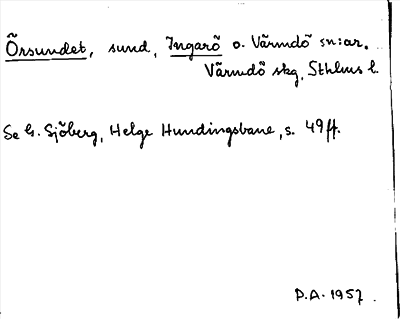 Örsundet, sund, Ingarö o. Värmdö sn:ar.
Värmdö skg, Sthlms l.
Se G. Sjöberg, Helge Hundingsbane, s. 49ff.
P.A. 1957.